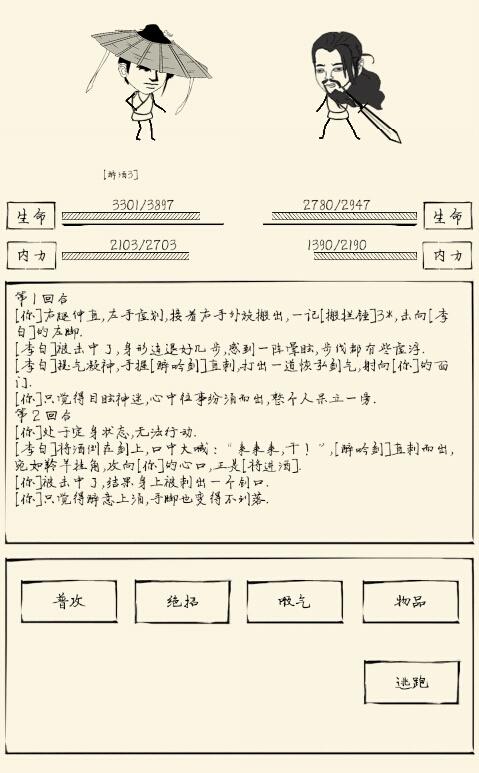 [醉酒3]
3301/3897
2780/2947
生命
生命
2103/2703
1390/2190
内力
内力
第1回合
[你]右腿伸直,左手虚划,接着右手外旋搬出,一记[搬拦锤]3米,击向[李
白]的左脚.
[李白]被击中了,身形连退好几步,感到一阵晕眩,步伐都有些虚浮.
[李白]提气凝神,手握[醉吟剑]直刺,打出一道恢弘剑气,射向[你]的面
门.
[你]只觉得目眩神迷,心中往事纷涌而出,整个人呆立一旁.
第2回合
[你]处于定身状态,无法行动.
[李白]将酒倒在剑上,口中大喊:"来来来,干!",[醉吟剑]直刺而出,
宛如羚羊挂角,攻向[你]的心口,正是[将进酒].
[你]被击中了,结果身上被刺出一个创口.
[你]只觉得醉意上涌,手脚也变得不利落.
普攻
绝招
吸气
物品
逃跑